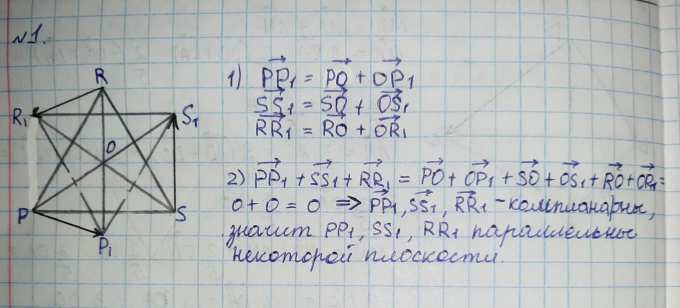 №1.
R
R₁
S₁
O
P
S
P₁
1) PP₁ = PO + OP₁
SS₁ = SO + OS₁
RR₁ = RO + OR₁
2) PP₁ + SS₁ + RR₁ = PO + OP₁ + SO + OS₁ + RO + OR₁ =
0 + 0 = 0 ⇒ PP₁, SS₁, RR₁ - компланарны,
значит PP₁, SS₁, RR₁ параллельны
некоторой плоскости.